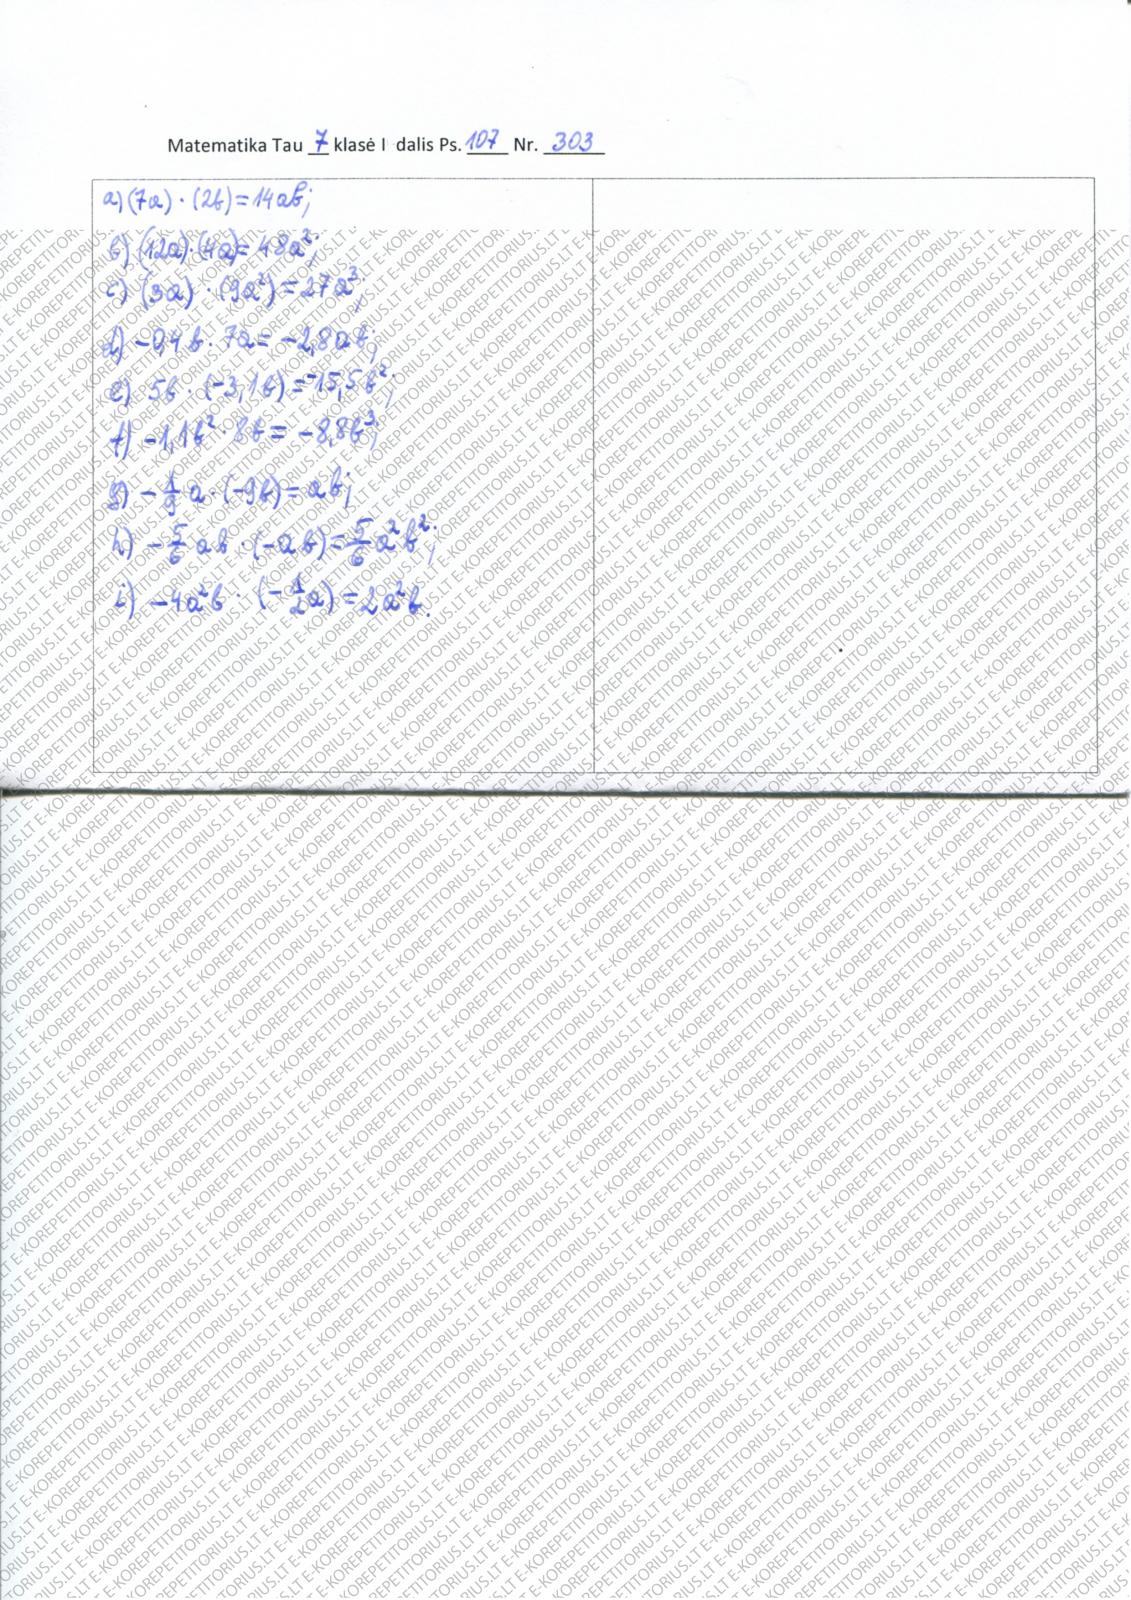 Matematika Tau 7 klasė I dalis Ps. 107 Nr. 303
a) (7a) · (2b) = 14ab;
b) (12a) · (4a) = 48a²;
c) (3a) · (9a²) = 27a³;
d) -0,4b · 7a = -2,8ab;
e) 5b · (-3,1b) = -15,5b²;
f) -1,1b² · 8b = -8,8b³;
g) -1/9 a · (-9b) = ab;
h) -5/6 ab · (-ab) = 5/6 a²b²;
i) -4a²b · (-1/2 a) = 2a²b.
E-KOREPETITORIUS.LT